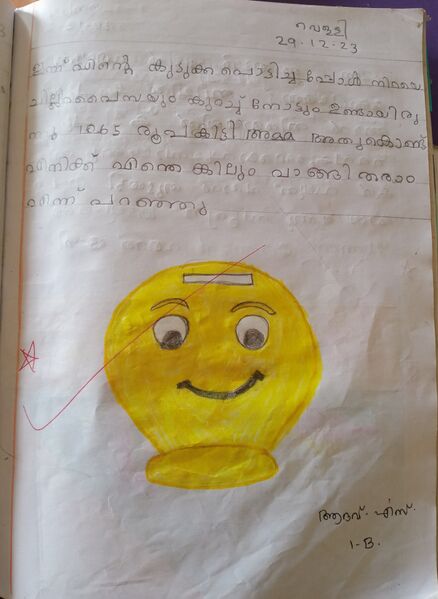 വെള്ളി
29.12.23
ഇന്ന് എന്റെ കുടുക്ക പൊട്ടിച്ചു പ്പോൾ നിറയെ
ചില്ലറപൈസയും കുറച്ച് നോട്ടും ഉണ്ടായിരു
ന്നു 1065 രൂപകിട്ടി അമ്മ അതുകൊണ്ട്
എനിക്ക് എന്തെങ്കിലും വാങ്ങി തരാം
എന്ന് പറഞ്ഞു
ആദവ്. എസ്.
1-B.